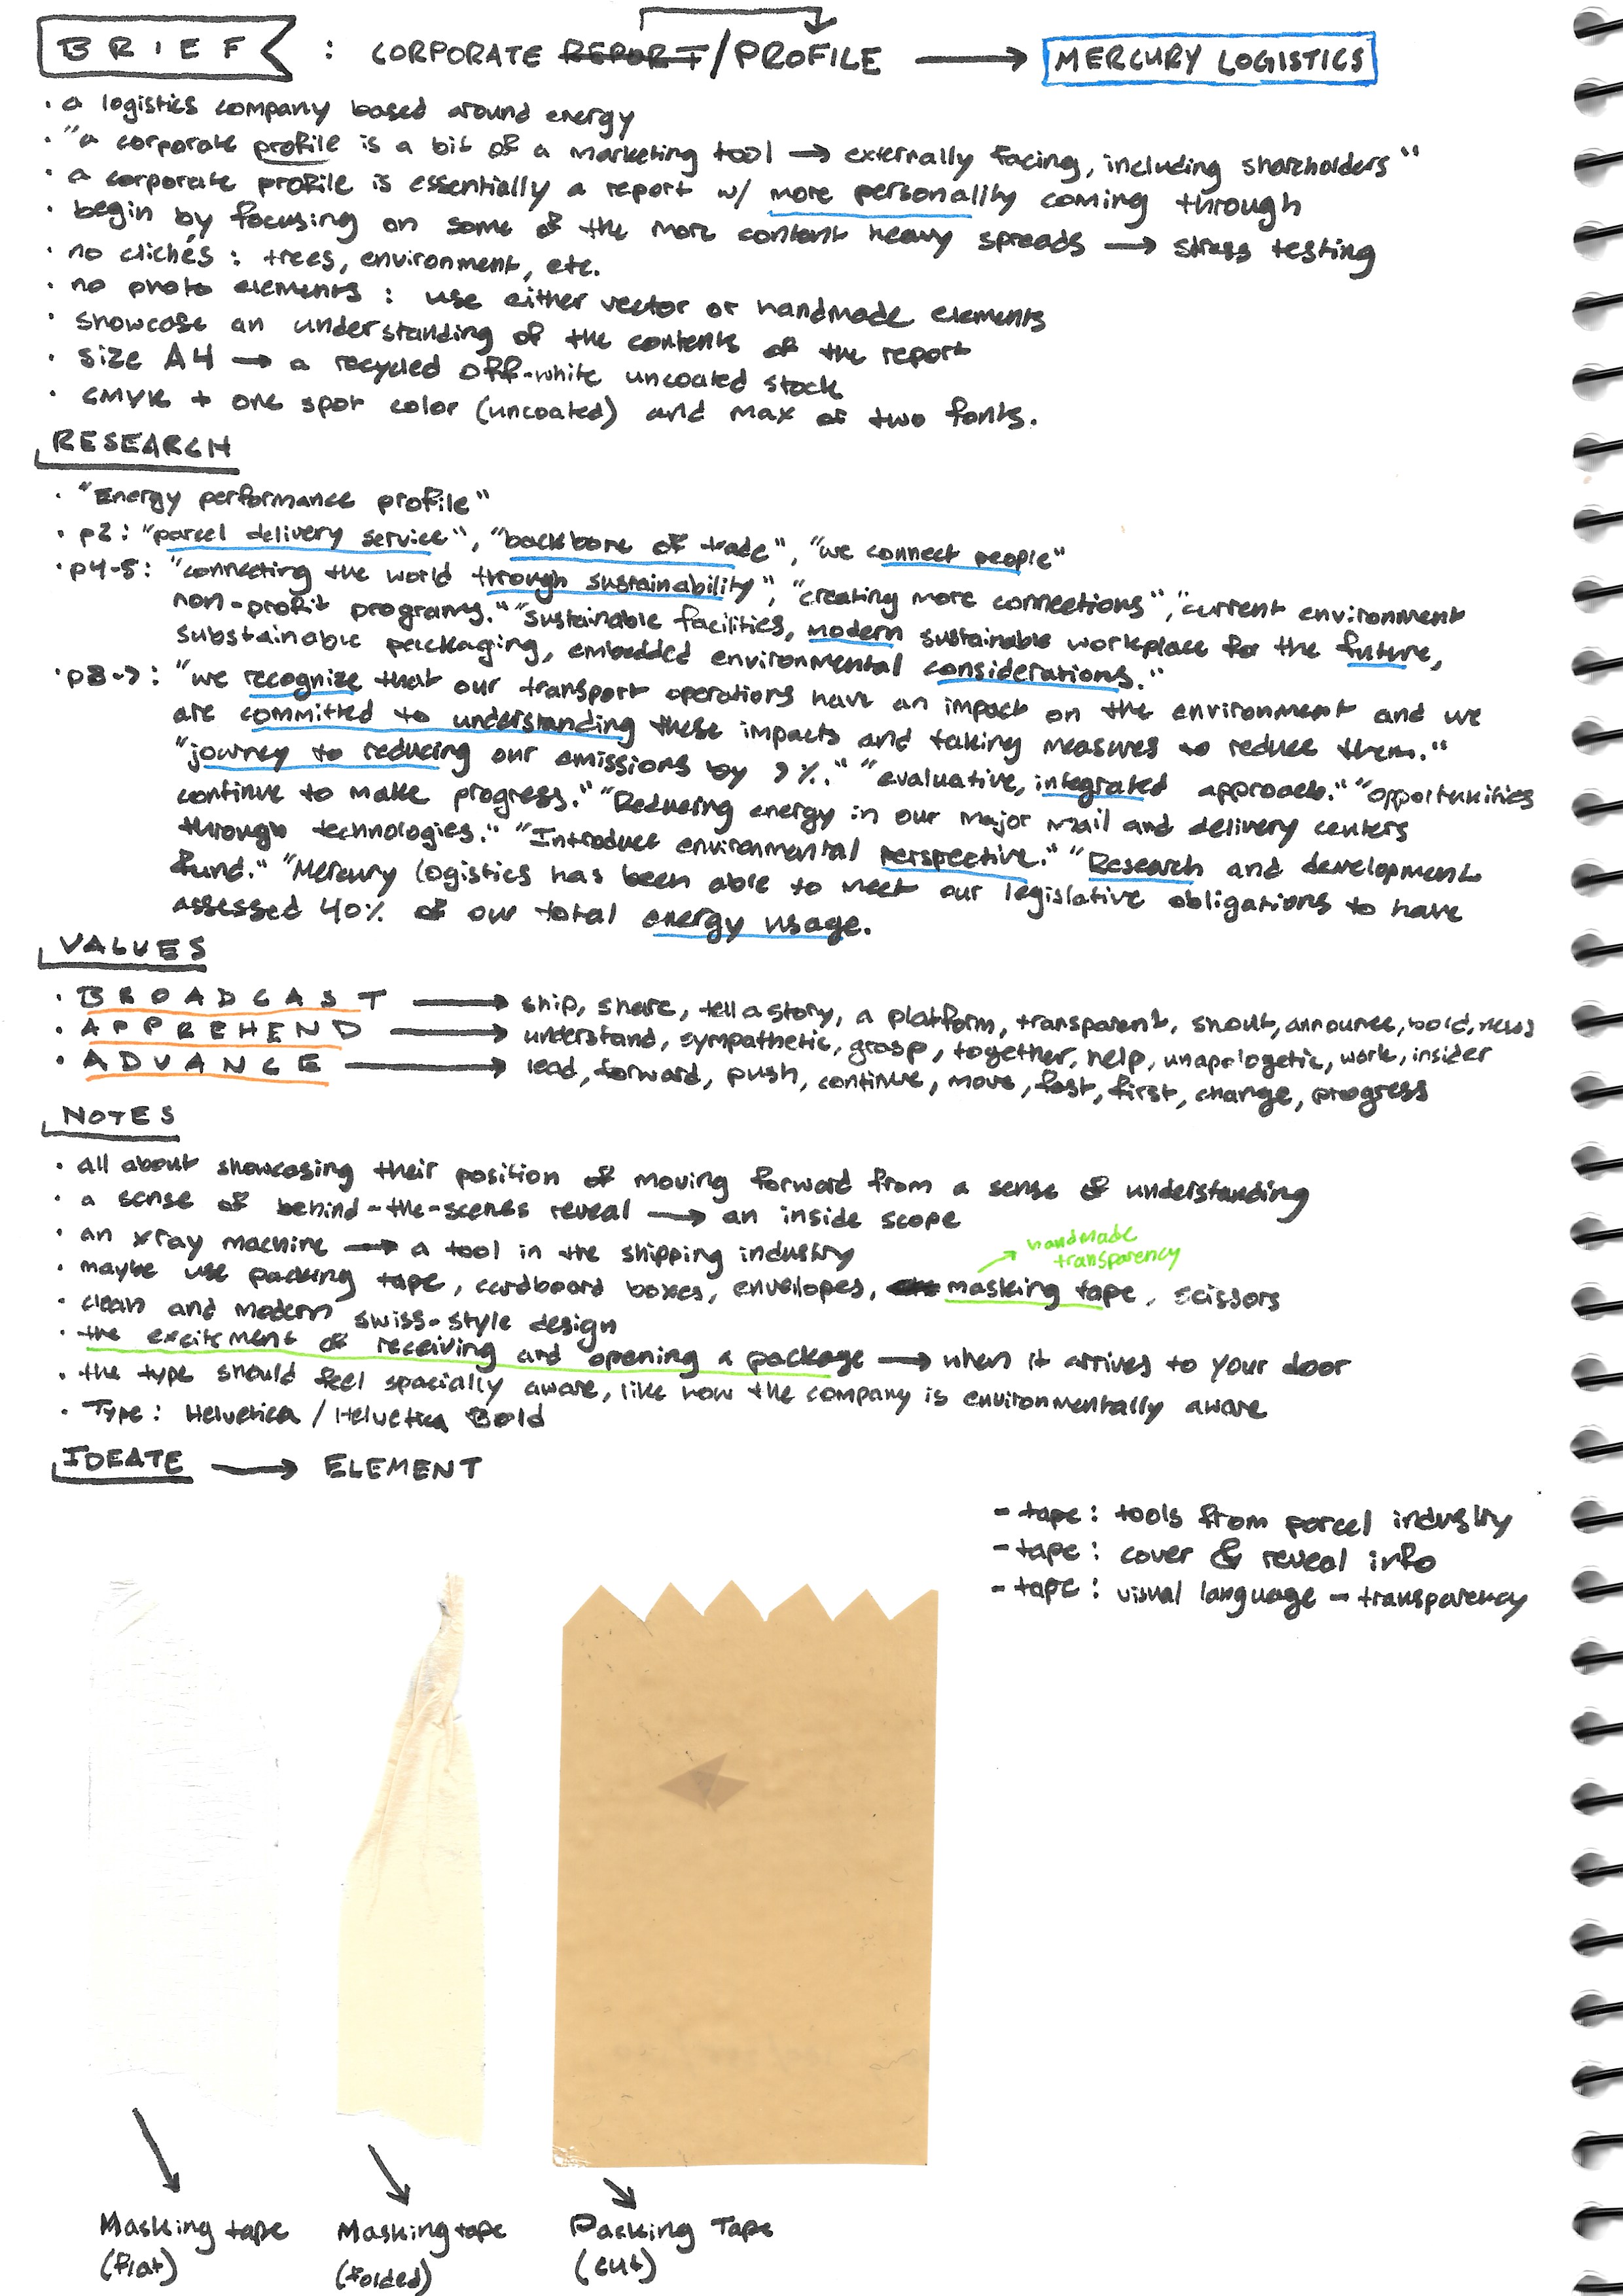 BRIEF : CORPORATE REPORT/PROFILE → MERCURY LOGISTICS
· a logistics company based around energy
· "a corporate profile is a bit of a marketing tool → externally facing, including shareholders"
· a corporate profile is essentially a report w/ more personality coming through
· begin by focusing on some of the more content heavy spreads → stress testing
· no clichés : trees, environment, etc.
· no photo elements : use either vector or handmade elements
· showcase an understanding of the contents of the report
· size A4 → a recycled off-white uncoated stock
· CMYK + one spot color (uncoated) and max of two fonts.
RESEARCH
· "Energy performance profile"
· p2 : "parcel delivery service", "backbone of trade", "we connect people"
· p4-5 : "connecting the world through sustainability", "creating more connections", "current environment
non-profit programs." "Sustainable facilities, modern sustainable workplace for the future,
substainable packaging, embedded environmental considerations."
· p8→ : "we recognize that our transport operations have an impact on the environment and we
are committed to understanding these impacts and taking measures to reduce them."
"journey to reducing our emissions by ?%." "evaluative, integrated approach." "opportunities
continue to make progress." "Reducing energy in our major mail and delivery centers
through technologies." "Introduce environmental perspective." "Research and development
fund." "Mercury logistics has been able to meet our legislative obligations to have
assessed 40% of our total energy usage.
VALUES
· BROADCAST → ship, share, tell a story, a platform, transparent, shout, announce, bold, news
· APPREHEND → understand, sympathetic, grasp, together, help, unapologetic, work, insider
· ADVANCE → lead, forward, push, continue, move, fast, first, change, progress
NOTES
· all about showcasing their position of moving forward from a sense of understanding
· a sense of behind-the-scenes reveal → an inside scope
· an xray machine → a tool in the shipping industry
handmade
transparency
· maybe use packing tape, cardboard boxes, envelopes, masking tape, scissors
· clean and modern swiss-style design
· the excitement of receiving and opening a package → when it arrives to your door
· the type should feel spacially aware, like how the company is environmentally aware
· Type : Helvetica / Helvetica Bold
IDEATE → ELEMENT
- tape : tools from parcel industry
- tape : cover & reveal info
- tape : visual language - transparency
Masking tape
(flat)
Masking tape
(folded)
Packing Tape
(cut)